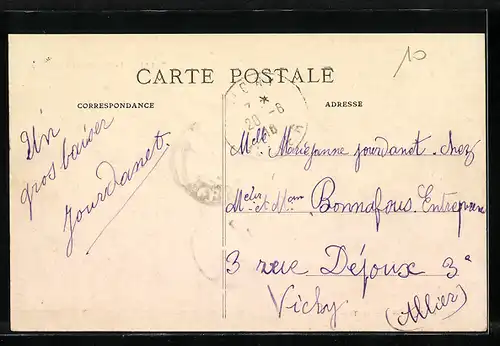 10
CARTE POSTALE
CORRESPONDANCE
ADRESSE
Un
gros baiser
Jourdanet
20 - 6
Melle Mariejanne jourdanet. chez
et Bonnafous. Entrepreneur
3 rue Déjoux 3
Vichy
(Allier)